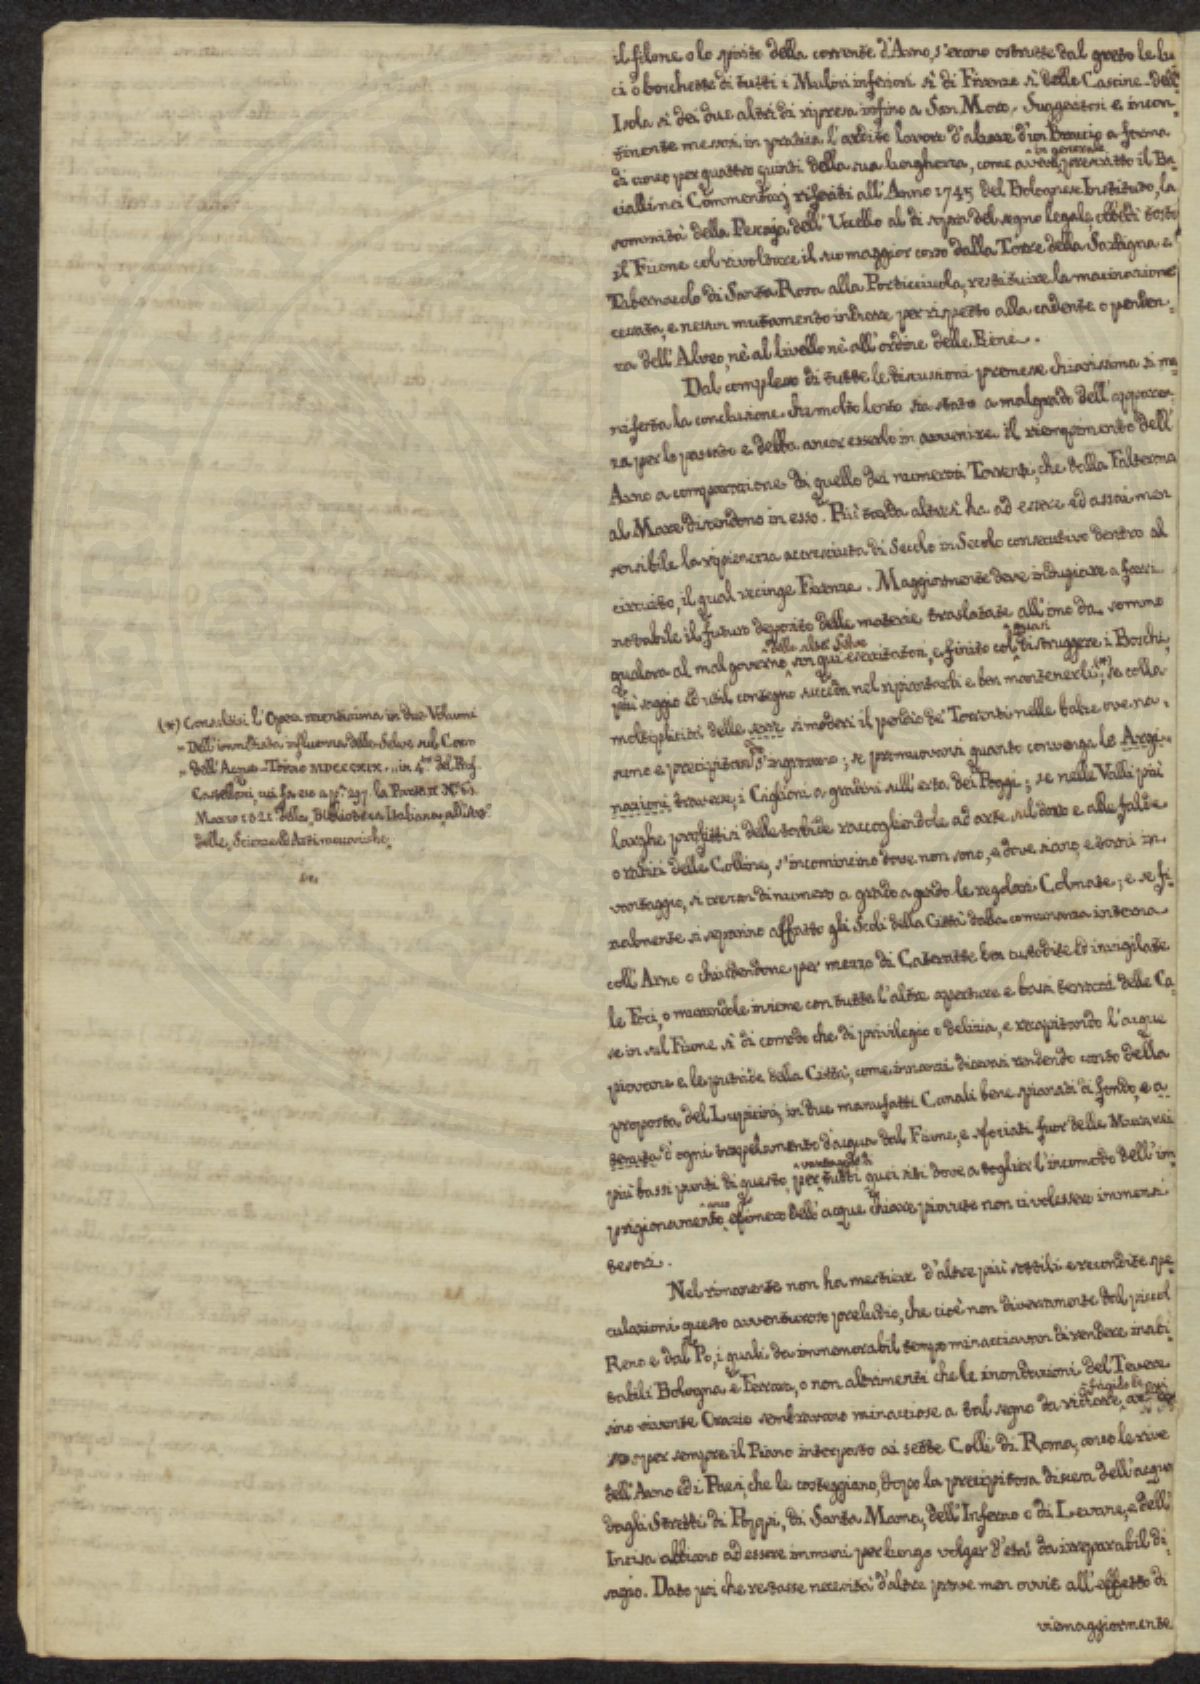 il filone o lo spirito della corrente d'Arno, s'erano ostrutte dal greto le lu
ci o bocchette di tutti i Mulini inferiori sì di Firenze sì delle Cascine dell'
Isola sì dei due altri di ripresa infino a San Moro. Suggeritosi e incon-
tinente messosi in pratica l'ardito lavoro d'alzare d'un Braccio a forma
di cuneo per quattro quinti della sua lunghezza, come aveva in generale prescritto il Ba
cialli nei Commentarj riferiti all'Anno 1745 del Bolognese Instituto, la
sommità della Pescaja dell'Uccello al di sopra del segno legale, ebbesi tosto
il Fiume col rivoltare il suo maggior corso dalla Torre della Sardigna e
Tabernacolo di Santa Rosa alla Porticciuola, restituire la macinazione
cessata, e nessun mutamento indosse per rispetto alla cadente o penden-
za dell'Alveo, nè al livello nè all'ordine delle Piene.
Dal complesso di tutte le discussioni premesse chiarissima si ma
nifesta la conclusione che molto lento sia stato a malgrado dell'apparen-
za per lo passato e debba ancor esserlo in avvenire il riempimento dell'
Arno a comparazione di quello dei numerosi Torrenti, che dalla Falterona
al Mare discendono in esso. Più tarda altresì ha ad essere ed assai men
sensibile la ripienezza accresciuta di Secolo in Secolo consecutivo dentro al
circuito, il qual recinge Firenze. Maggiormente deve indugiare a farsi
notabile il futuro deposito delle materie traslatate all'imo da sommo
qualora al mal governo delle alte Selve, sin qui esercitatosi, e finito col quasi distruggere i Boschi,
più saggio ed util contegno succeda nel ripiantarli e ben mantenerli (*); se colla
moltiplicità delle serre si moderi il pendio de' Torrenti nelle balze ove na-
scono e precipitan s'ingrossano; se promuovansi quanto convenga le Argi-
nazioni traverse, i Ciglioni a gradini sull'erta dei Poggi; se nelle Valli più
larghe profittisi delle torbide raccogliendole ad arte sul dorso e alle falde
o radici delle Colline, s'incomincino dove non sono, e dove siano, e torni in
vantaggio, si crescan di numero a grado a grado le regolari Colmate; e se fi-
nalmente si separino affatto gli Scoli della Città dalla comunanza interna
coll'Arno o chiudendone per mezzo di Cateratte ben custodite ed invigilate
le Foci, o murandole insieme con tutte l'altre aperture e bassi terrazzi delle Ca-
se in sul Fiume sì di comodo che di privilegio o delizia, e recapitando l'acque
piovane e le putride della Città, come innanzi dicevasi rendendo conto della
proposta del Lupicini, in due manufatti Canali bene spianati di fondo, e a
tenuta d'ogni trapelamento d'acqua dal Fiume, e sfociati fuor delle Mura nei
più bassi punti di questo, per vantaggio di tutti quei siti dove a toglier l'incomodo dell'im
prigionamento efimero dell'acque chiare piovute non ci volessero immensi
tesori.
Nel rimanente non ha mestiere d'altre più sottili e recondite spe-
culazioni questo avventuroso preludio, che cioè non diversamente dal piccol
Reno e dal Po, i quali da immemorabil tempo minacciavan di rendere inabi-
tabili Bologna e Ferrara, o non altrimenti che le inondazioni del Tevere
sino vivente Orazio sembravano minacciose a tal segno da
per sempre il Piano interposto ai sette Colli di Roma, anco le rive
dell'Arno ed i Paesi, che le costeggiano, dopo la precipitosa discesa dell'acqua
dagli Stretti di Poppi, di Santa Mama, dell'Inferno o di Levane, e dell'
Incisa abbiano ad essere immuni per lungo volger d'età da irreparabil di-
sagio. Dato poi che restasse necessità d'altre prove men ovvie all'effetto di
viemaggiormente
(*) Consultisi l'Opera recentissima in due Volumi
„ Dell'immediata influenza delle Selve sul Corso
„ dell'Acque - Torino MDCCCXIX „ in 4.to del Prof.
Castellani, cui fa eco a p.a 297 la Parte II N.o 63
Marzo 1821 della „ Biblioteca Italiana „
delle „ Scienze ed Arti meccaniche.